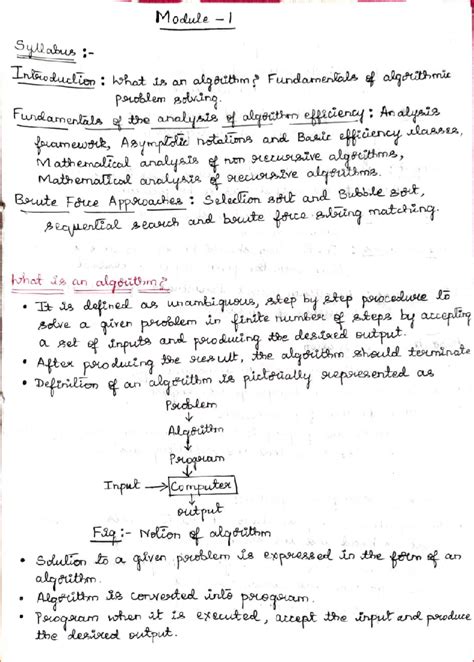 Module - 1
Syllabus :-
Introduction : What is an algorithm? Fundamentals of algorithmic
problem solving.
Fundamentals of the analysis of algorithm efficiency : Analysis
framework, Asymptotic notations and Basic efficiency classes,
Mathematical analysis of non recursive algorithms,
Mathematical analysis of recursive algorithms.
Brute Force Approaches : Selection sort and Bubble sort,
sequential search and brute force string matching.
What is an algorithm?
• It is defined as unambiguous, step by step procedure to
solve a given problem in finite number of steps by accepting
a set of inputs and producing the desired output.
• After producing the result, the algorithm should terminate
• Definition of an algorithm is pictorially represented as
Problem
↓
Algorithm
↓
Program
↓
Input → Computer
↓
output
Fig :- Notion of algorithm
• Solution to a given problem is expressed in the form of an
algorithm.
• Algorithm is converted into program.
• Program when it is executed, accept the input and produce
the desired output.